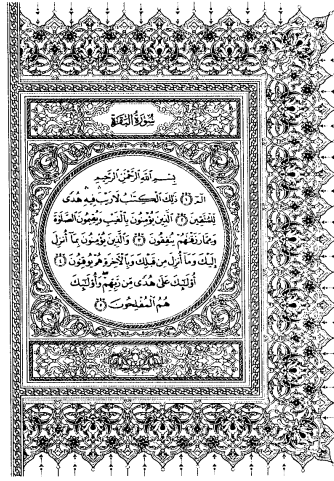 سُورَةُ البَقَرَةِ
بِسْمِ اللَّهِ الرَّحْمَنِ الرَّحِيمِ
الٓمٓ ۝١ ذَٰلِكَ الْكِتَٰبُ لَا رَيْبَ فِيهِ هُدًى
لِّلْمُتَّقِينَ ۝٢ الَّذِينَ يُؤْمِنُونَ بِالْغَيْبِ وَيُقِيمُونَ الصَّلَوٰةَ
وَمِمَّا رَزَقْنَٰهُمْ يُنفِقُونَ ۝٣ وَالَّذِينَ يُؤْمِنُونَ بِمَآ أُنزِلَ
إِلَيْكَ وَمَآ أُنزِلَ مِن قَبْلِكَ وَبِالْآخِرَةِ هُمْ يُوقِنُونَ ۝٤
أُو۟لَٰٓئِكَ عَلَىٰ هُدًى مِّن رَّبِّهِمْ وَأُو۟لَٰٓئِكَ
هُمُ الْمُفْلِحُونَ ۝٥